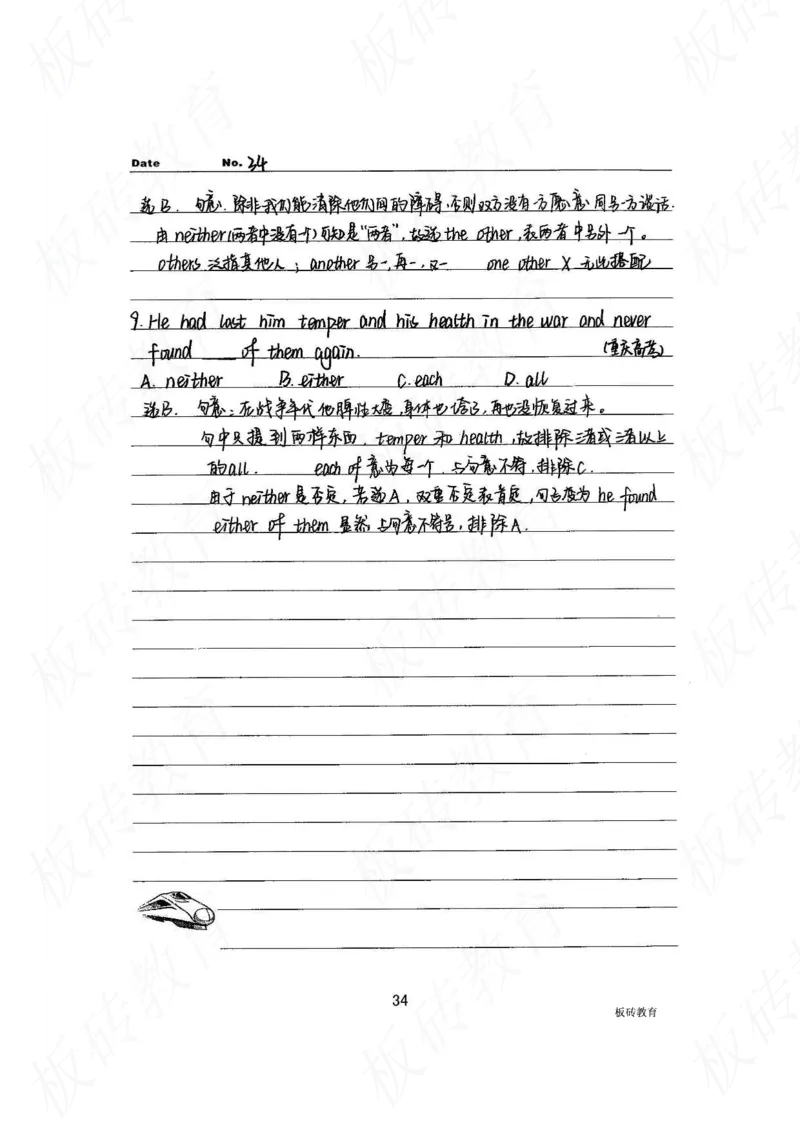 Date No. 34
选B. 句意:除非我们能清除他们间的障碍,否则双方没有一方愿意同另一方谈话.
由neither(两者中没有一个)可知是"两者",故选the other,表两者中另外一个。
others 泛指其他人; another 另一,再一,又一 one other X 无此搭配
9. He had lost him temper and his health in the war and never
found ___ of them again. (重庆高考)
A. neither B. either C. each D. all
选B. 句意:在战争年代他脾性大变,身体也垮了,再也没恢复过来。
句中只提到两样东西,temper和health,故排除三者或三者以上
的all. each of 意为每一个,与句意不符,排除C.
由于neither是否定,若选A,双重否定表肯定,句子变为he found
either of them 显然与句意不符号,排除A.
34
板砖教育